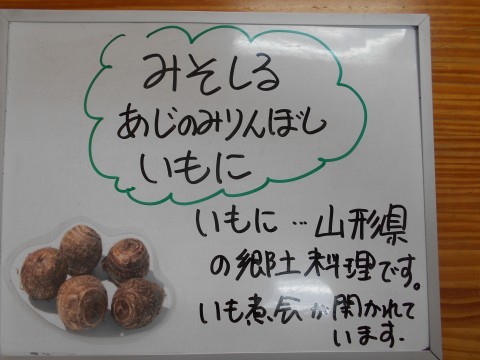 みそしる
あじのみりんぼし
いもに
いもに…山形県
の郷土料理です。
いも煮会が開かれて
います.